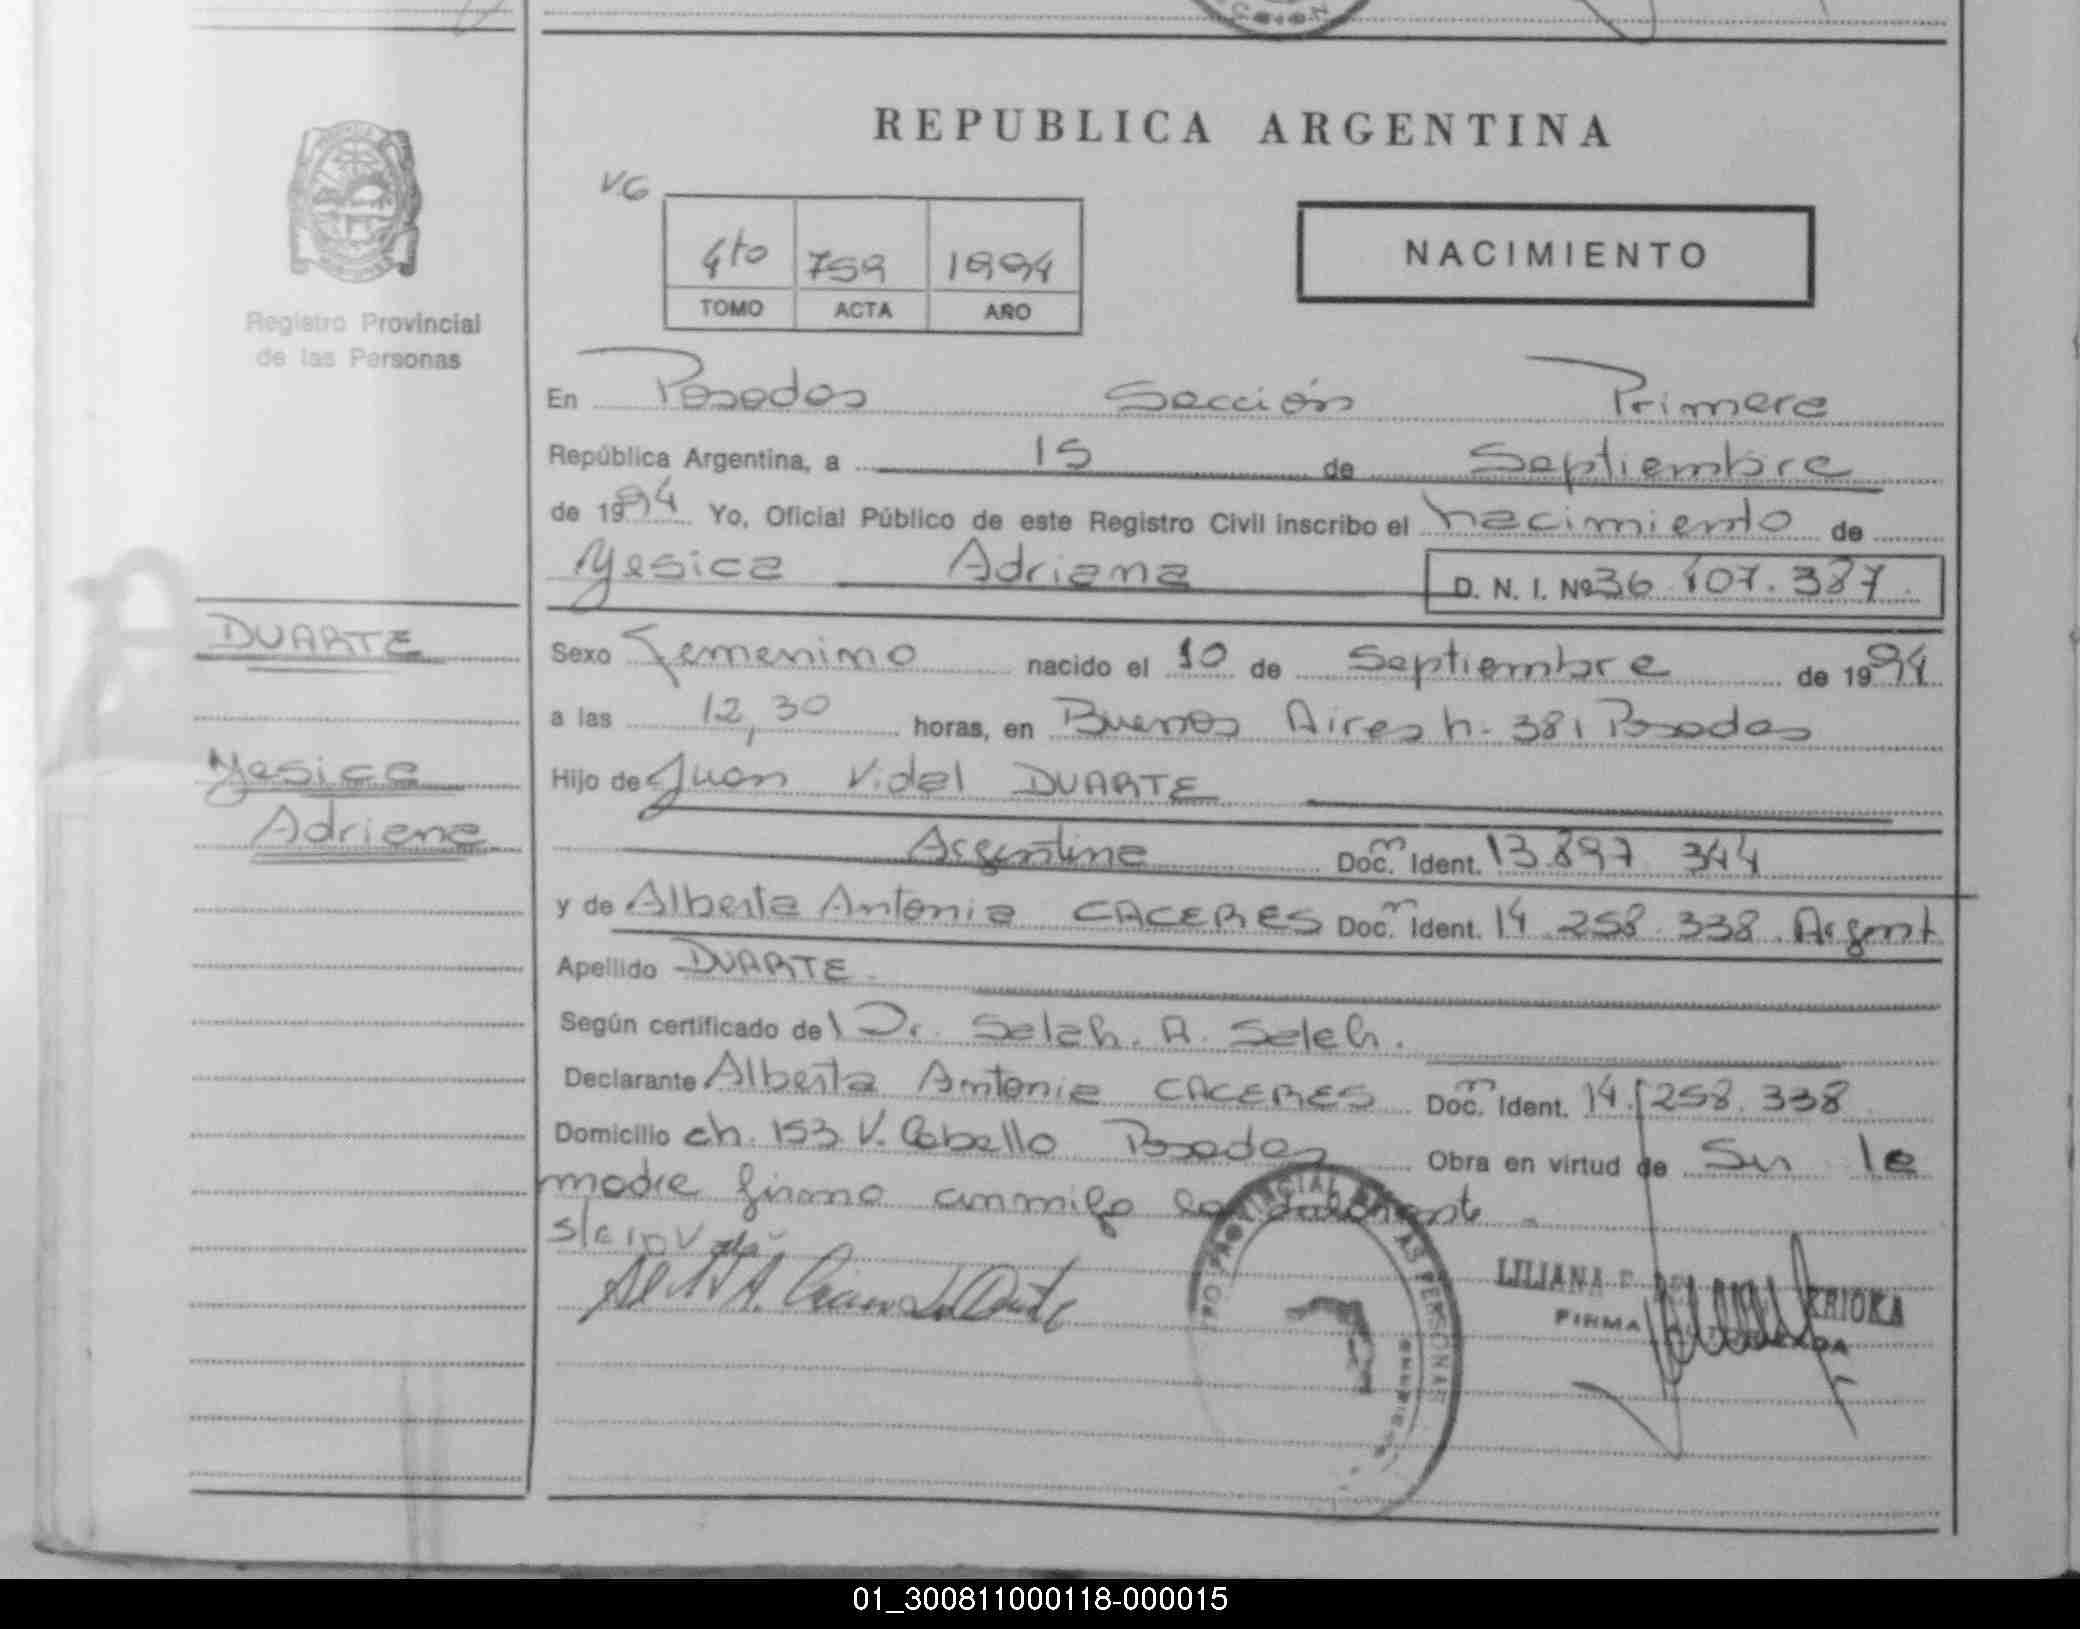 REPUBLICA ARGENTINA
V6
4to 759 1994
TOMO ACTA AÑO
NACIMIENTO
Registro Provincial
de las Personas
En Posadas Sección Primera
República Argentina, a 15 de Septiembre
de 1994 Yo, Oficial Público de este Registro Civil inscribo el nacimiento de
Yesica Adriana D. N. I. Nº 36.407.387.
DUARTE
Yesica
Adriana
Sexo Femenino nacido el 10 de Septiembre de 1994
a las 12,30 horas, en Buenos Aires n. 381 Posadas
Hijo de Juan Vidal DUARTE
Argentina Doc. Ident. 13.897.344
y de Alberta Antonia CACERES Doc. Ident. 14.258.338. Argent
Apellido DUARTE
Según certificado de l Dr. Saleh. A. Saleh.
Declarante Alberta Antonia CACERES Doc. Ident. 14.258.338
Domicilio ch. 153 V. Cabello Posadas Obra en virtud de Su la
madre firma conmigo
LILIANA
FIRMA
01_300811000118-000015